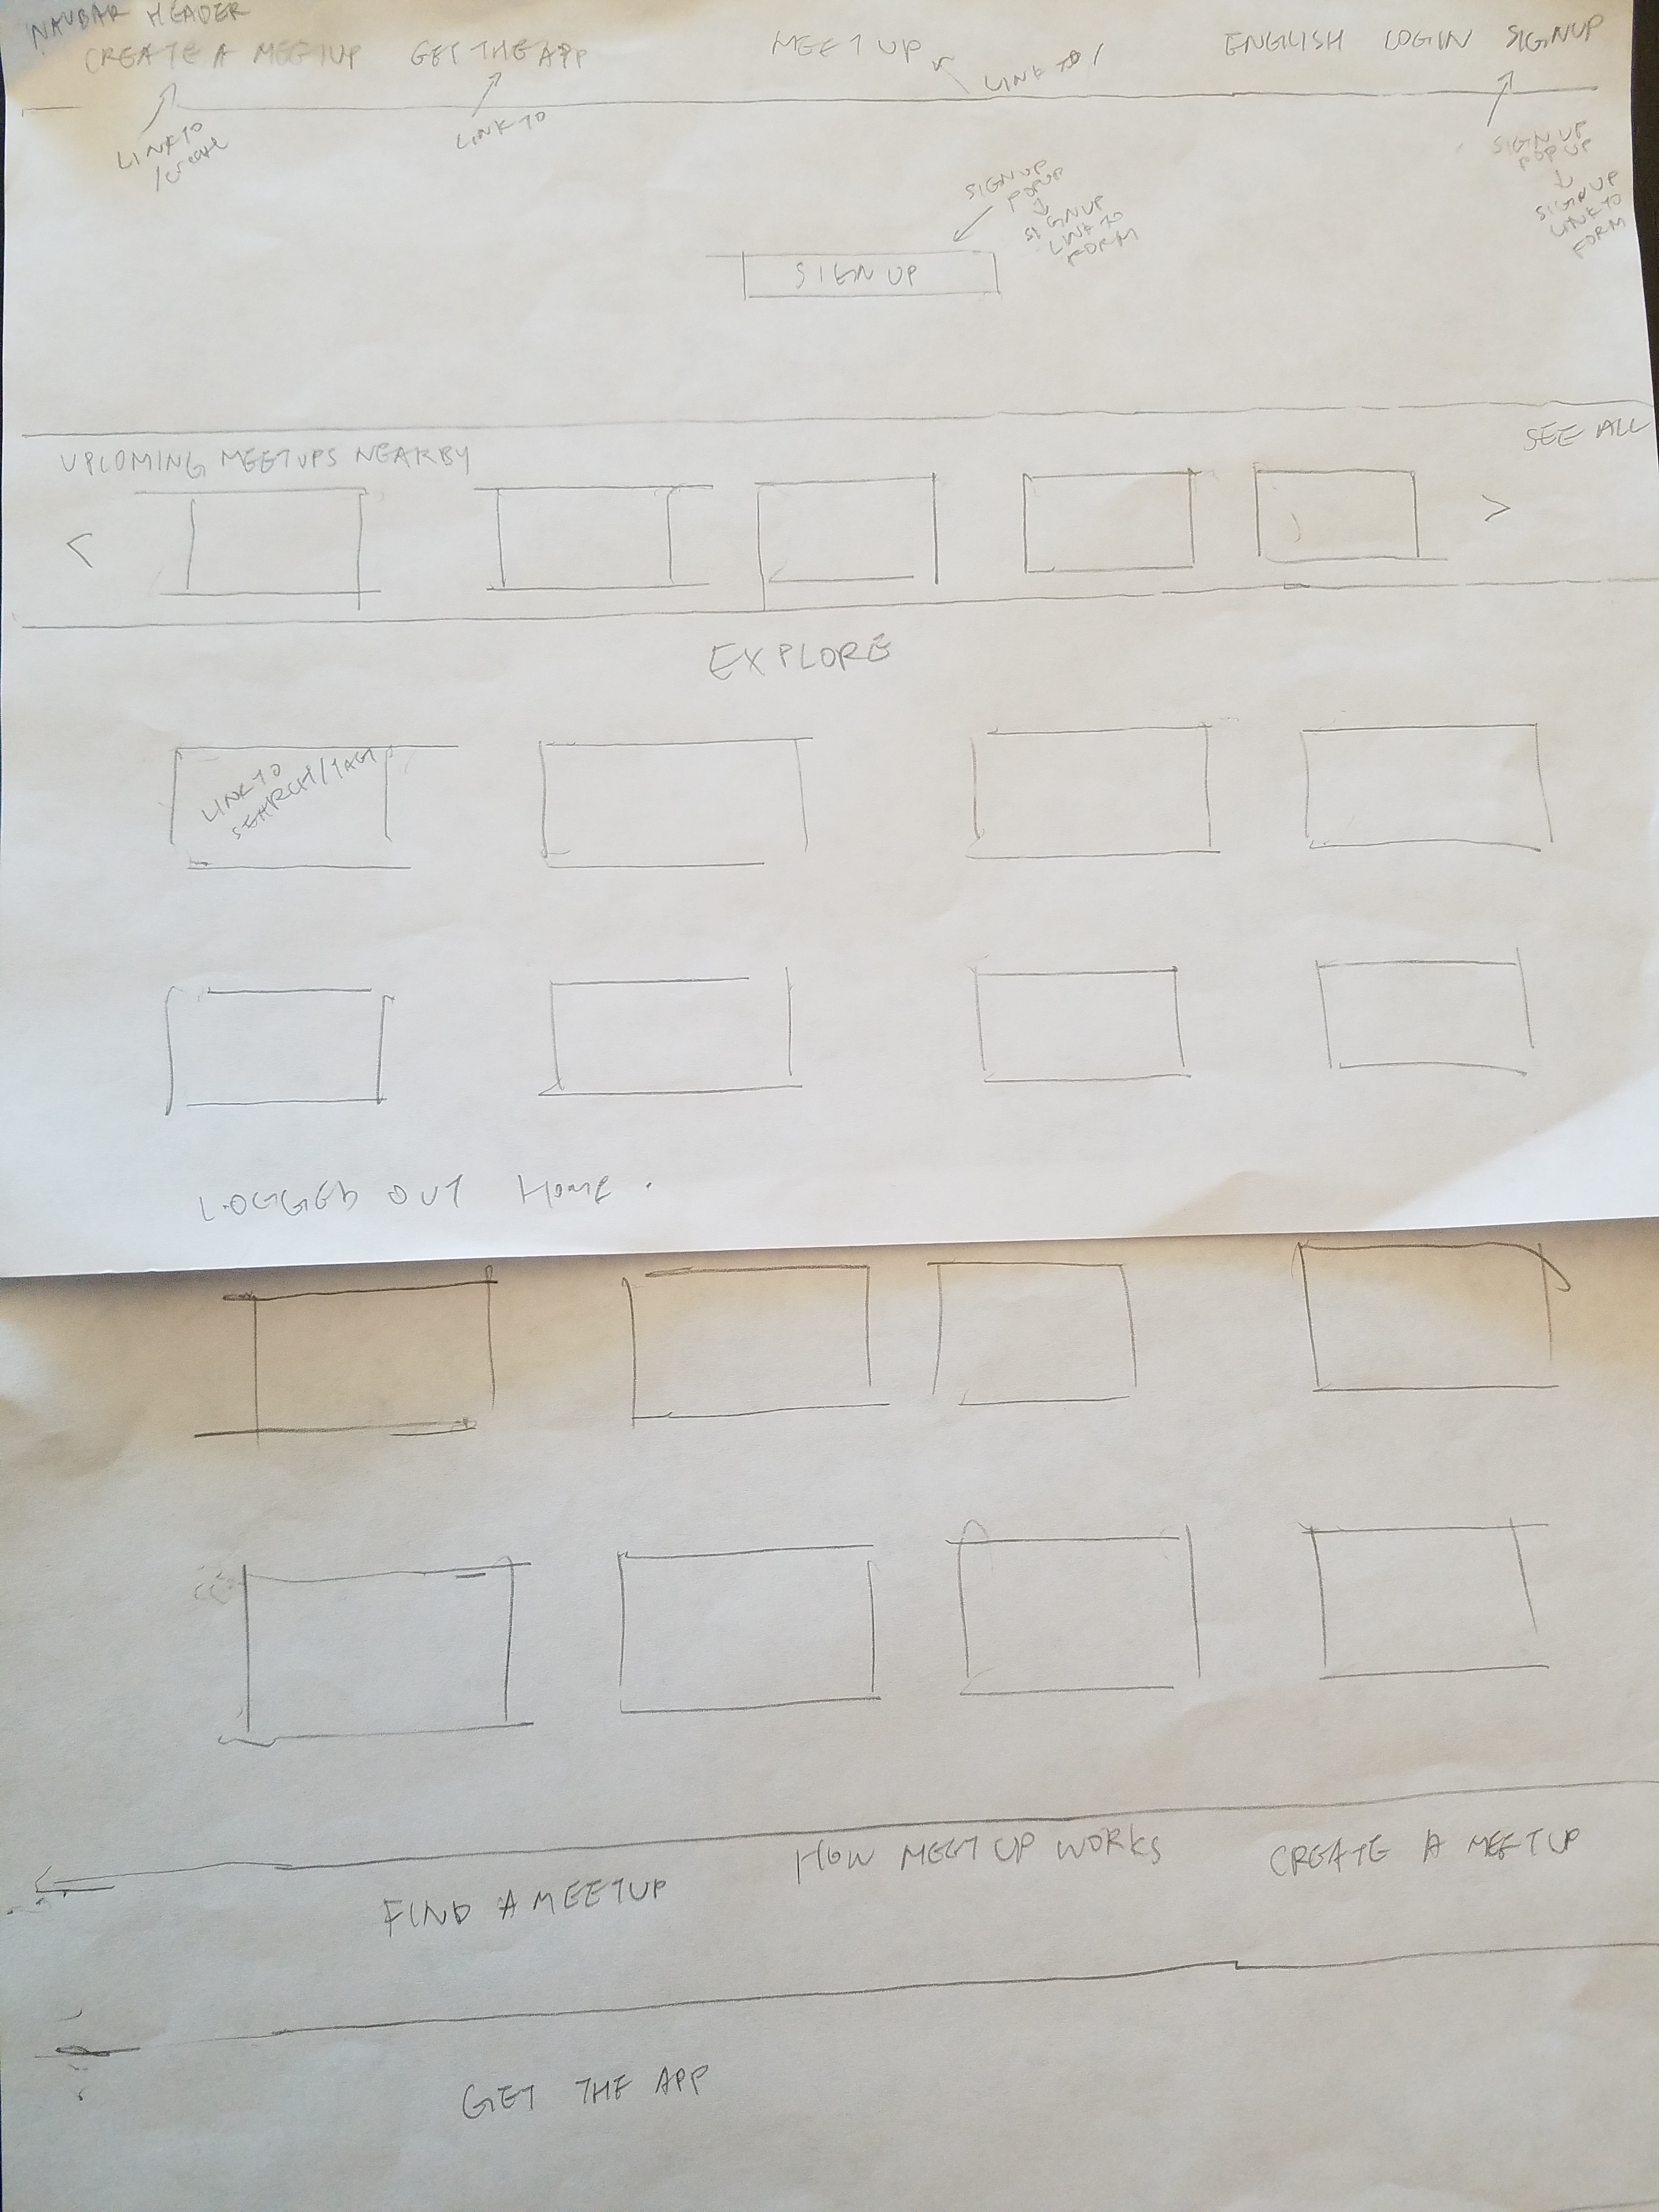 NAVBAR HEADER
CREATE A MEETUP GET THE APP MEETUP ENGLISH LOGIN SIGNUP
LINK TO /
LINK TO
/create
LINK TO
SIGNUP
POPUP
↓
SIGNUP
LINK TO
FORM
SIGN UP
POP UP
↓
SIGNUP
LINK TO
FORM
SIGN UP
UPCOMING MEETUPS NEARBY SEE ALL
< >
EXPLORE
LINK TO
SEARCH/TAG
LOGGED OUT HOME.
FIND A MEETUP HOW MEETUP WORKS CREATE A MEETUP
GET THE APP